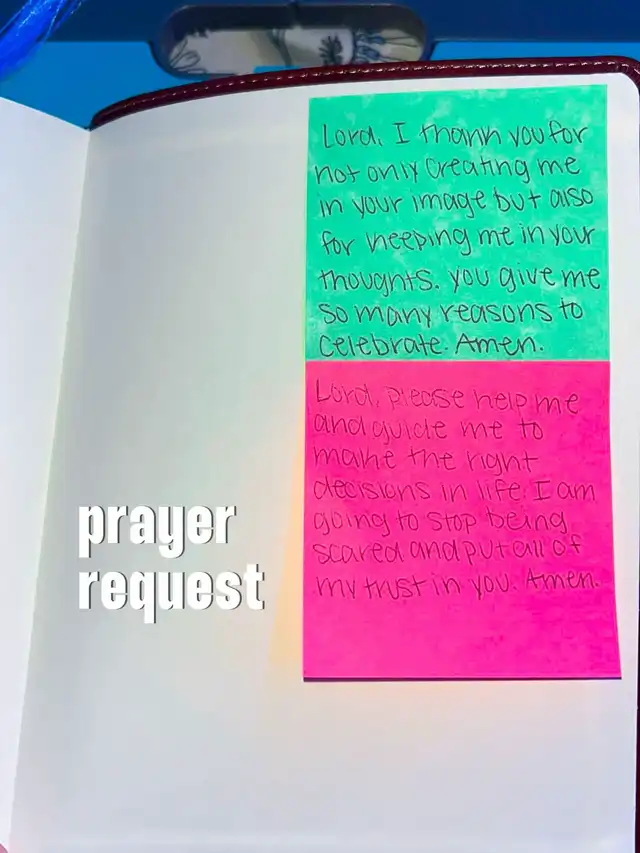 Lord, I thank you for
not only creating me
in your image but also
for keeping me in your
thoughts. you give me
so many reasons to
celebrate. Amen.
Lord, please help me
and guide me to
make the right
decisions in life. I am
going to stop being
scared and put all of
my trust in you. Amen.
prayer
request